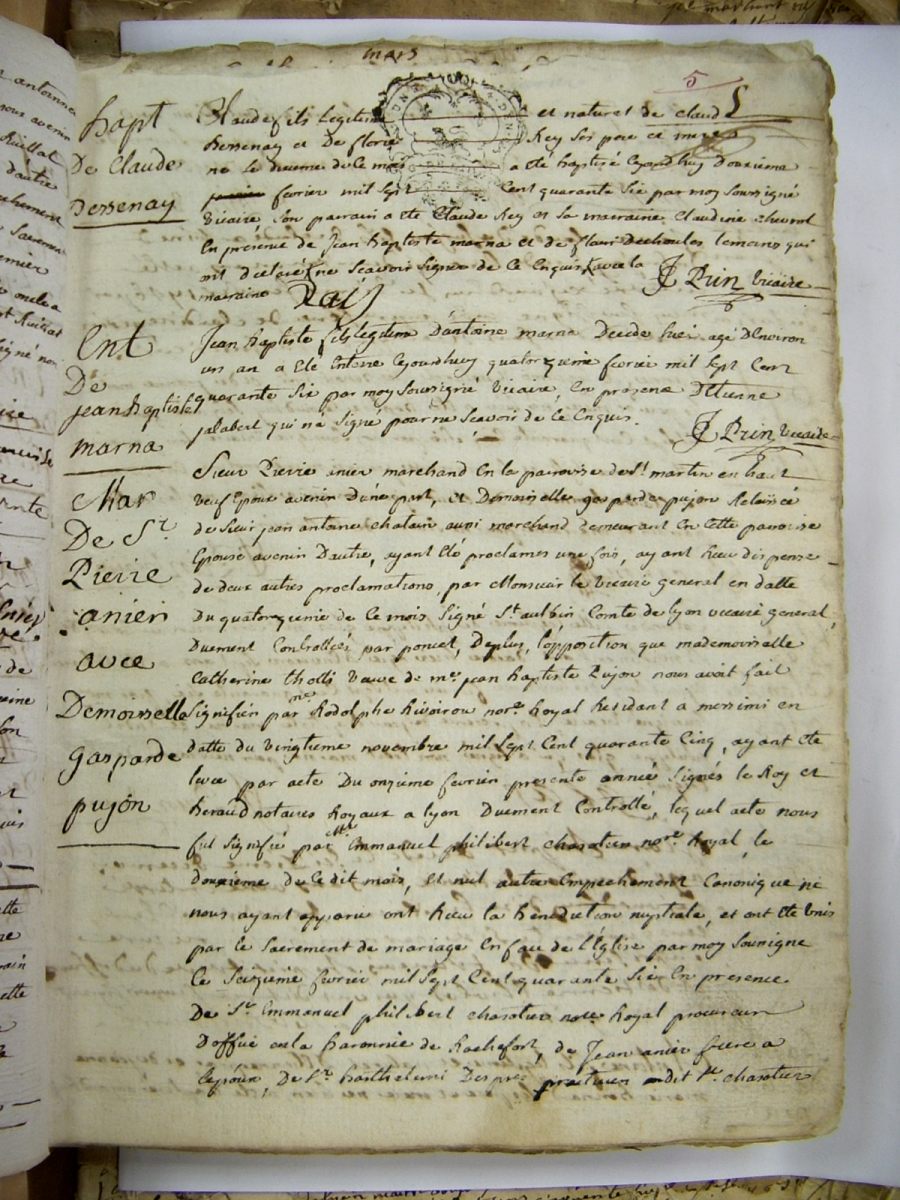 mars
5
bapt
De Claude
Dessenay
Claude fils legitime et naturel de claud
Dessenay et De florie Rey ses pere et mere
ne le du de ce mois a eté baptisé cejourdhuy Douzieme
fevrier mil sept Cent quarante Six par moy soussigné
vicaire son parrain a ete Claude Rey et sa marraine Claudine
En présence de Jean baptiste marna et de qui
ont déclaré ne scavoir signer de Ce Enquis avec la
marraine
J Prin vicaire
Ent
De
jean Baptiste
marna
Jean baptiste fils legitime D'antoine marna Décédé hier agé D'Environ
un an a eté Enterré Cejourdhuy quatorzieme fevrier mil sept Cent
quarante Six par moy soussigné vicaire, En présence D'Etienne
jalabert qui na signé pour ne scavoir de ce Enquis.
J Prin vicaire
Mar
De Sr.
Pierre
anier
avec
Demoiselle
gasparde
pujon
Sieur Pierre anier marchand En la paroisse de St martin en haut
veuf Epoux avenir D'une part, et Demoiselle gasparde pujon Relaissée
de sieur jean antoine chalain aussi marchand demeurant En cette paroisse
Epouse avenir D'autre, ayant eté proclamés une fois, ayant heu dispense
de deux autres proclamations par Monsieur le vicaire general en datte
Du quatorzieme de Ce mois Signé St aulbin Comte de lyon vicaire general,
Duement Controllée par poncet, Deplus, l'opposition que mademoiselle
Catherine tholli veuve de mr. jean baptiste Pujon nous avoit fait
signifier par me Rodolphe Rivoirou nore. Royal Residant a messimi en
datte du vingtieme novembre mil Sept Cent quarante Cinq, ayant eté
levée par acte Du onzieme fevrier presente année Signés le Roy et
heraud notaires Royaux a lyon Duement Controllé, lequel acte nous
fut signifié par Me Emmanuel philibert charotier nore Royal, le
douzieme de Ce dit mois, et nul autre Empechement Canonique ne
nous ayant apparu ont heu la bénédiction nuptiale, et ont eté unis
par le Sacrement de mariage En face de l'Eglise par moy soussigné
Ce Seizieme fevrier mil Sept Cent quarante Six En presence
De Sr. Emmanuel philibert charotier nore Royal procureur
D'office en la Baronnie de Rochefort, de Jean anier frere a
l'époux, De Sr. barthelemi praticien dit Sr. charotier